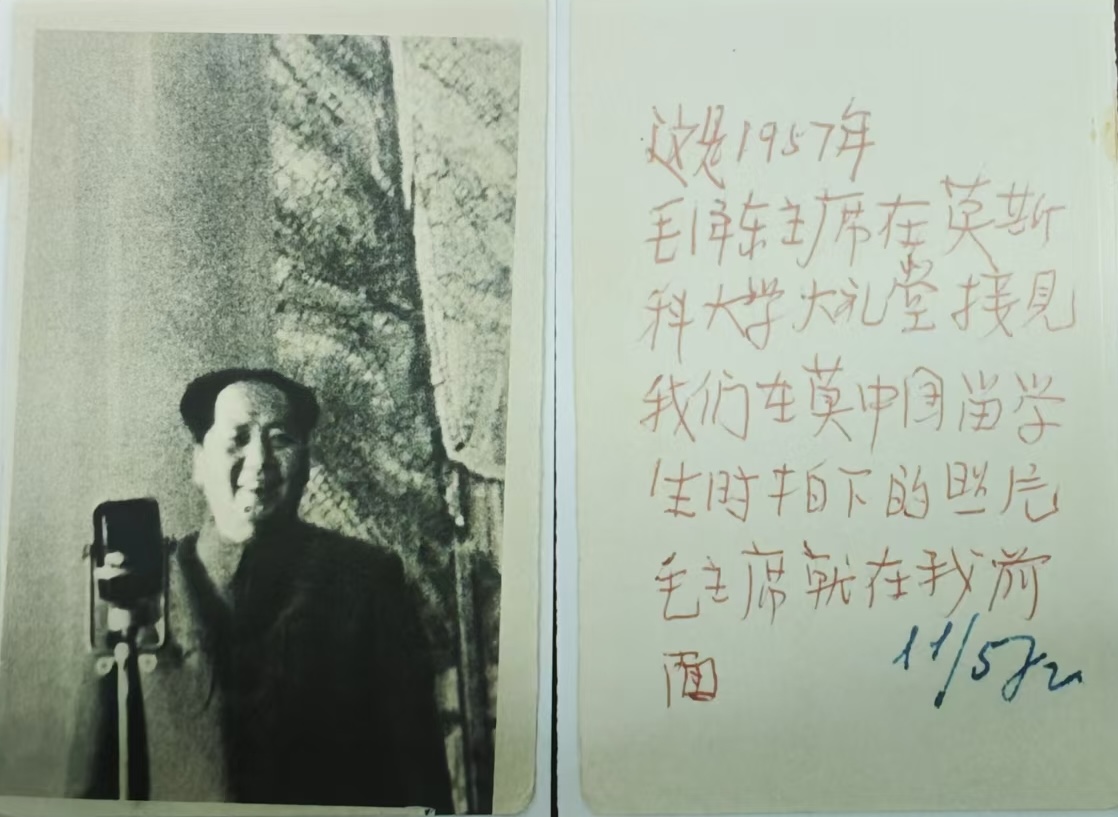 这是1957年
毛泽东主席在莫斯
科大学大礼堂接見
我们在莫中国留学
生时拍下的照片
毛主席就在我前
面
11/57г